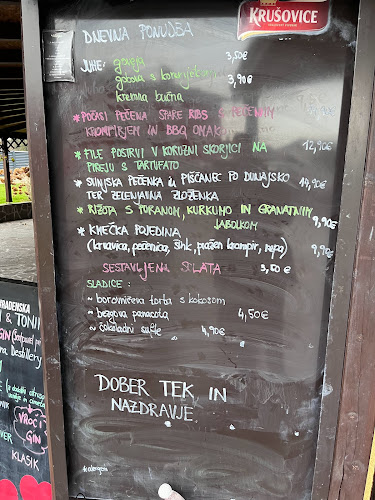 KRUŠOVICE
DNEVNA PONUDBA
JUHE: goveja 3,50€
gobova s koruznjekom 3,90€
kremna bučna
* POČASI PEČENA SPARE RIBS S PEČENIM
KROMPIRJEM IN BBQ OMAKO 12,90€
* FILE POSTRVI V KORUZNI SKORJICI NA
PIREJU S TARTUFATO
* SVINJSKA PEČENKA in PIŠČANEC PO DUNAJSKO 14,90€
TER ZELENJAVNA ZLOŽENKA
* RIŽOTA S PORANOM, KURKUMO IN GRANATNIM
JABOLKOM 9,90€
* KMEČKA POJEDINA
(krvavica, pečenica, šink, pražen krompir, repa) 9,90€
SESTAVLJENA SOLATA 3,50€
SLADICE:
~ borovničeva torta s kokosom
~ bezgova panacota 4,50€
~ čokoladni sufle 4,90€
DOBER TEK IN
NAZDRAVJE
*alergeni
& TONI
GIN
Destillery
VROČI
GIN
KLASIK